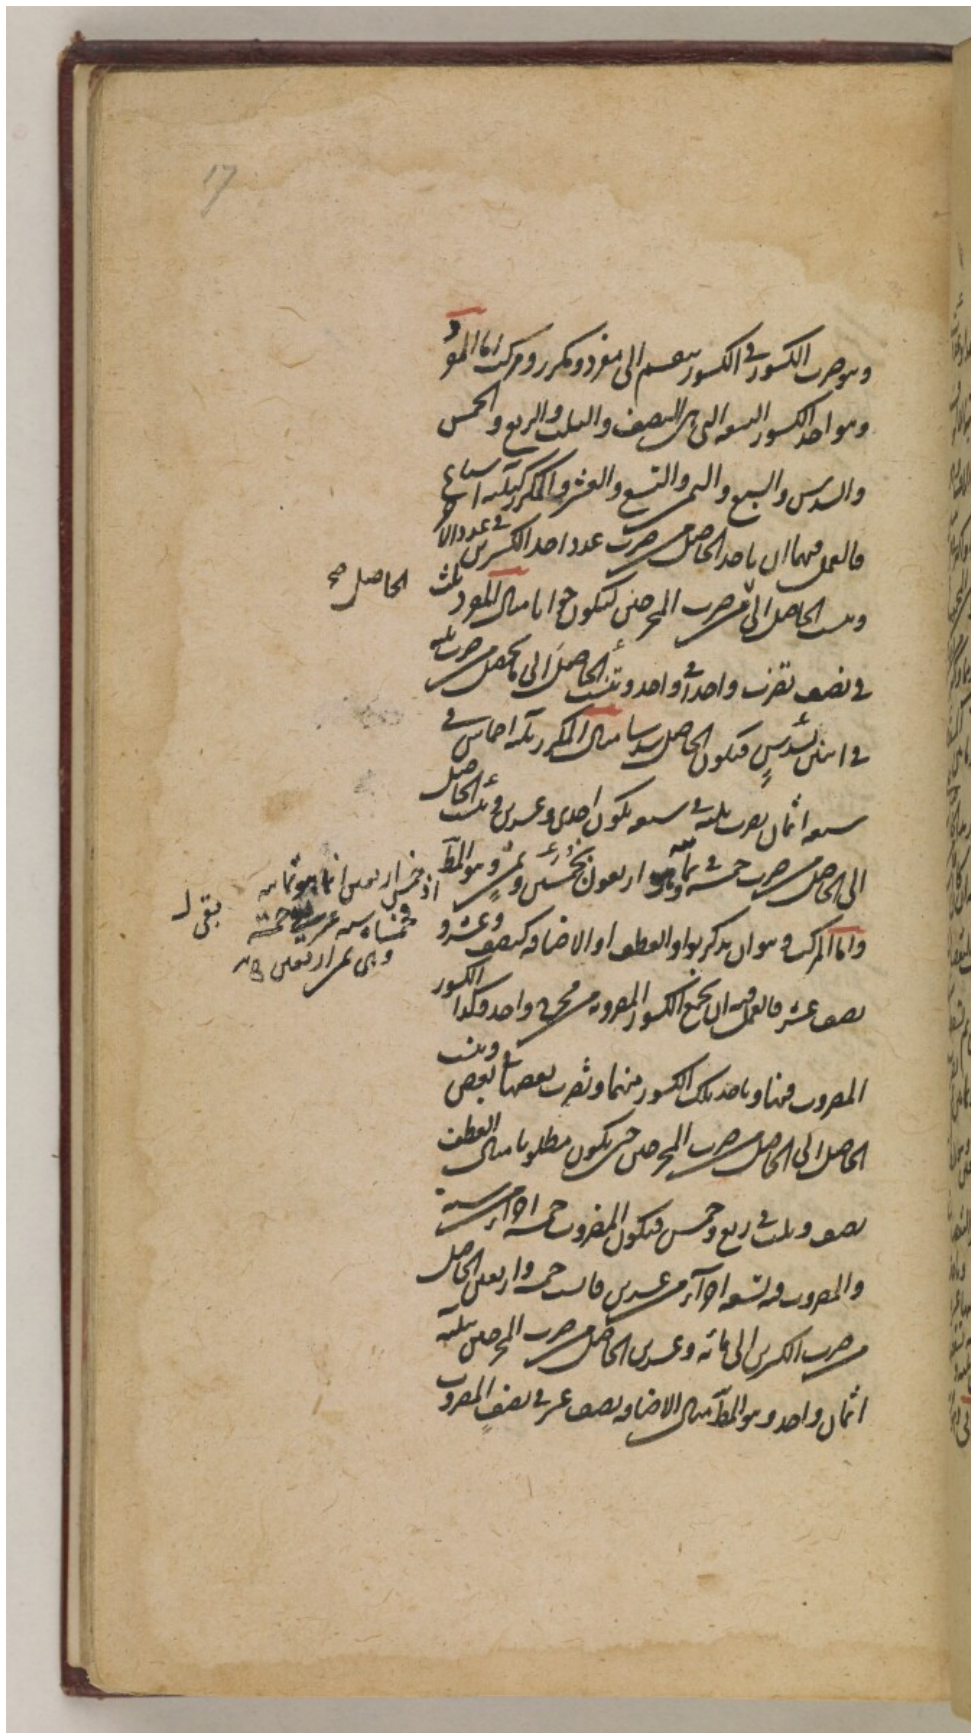 17
وهو ضرب الكسور في الكسور ينقسم الى مفرد ومكرر ومركب اما المفرد
وهو احد الكسور التسعة التي هي النصف والثلث والربع والخمس
والسدس والسبع والثمن والتسع والعشر والمكرر كثلثة اسباع
فالعمل فيهما ان ياخذ الحاصل من ضرب عدد احد الكسرين في عدد الاخر
وينسب الحاصل الى من ضرب المخرجين ليكون جوابا مثال المفرد ثلث
الحاصل صح
في نصف تضرب واحدا في واحد وتنسب الحاصل الى ما يحصل من ضرب ثلثة
في اثنين بسدس فيكون الحاصل سدسا مثال المكرر ثلثة اخماس في
سبعة اثمان يضرب ثلثة في سبعة يكون احدى وعشرين وينسب الحاصل
الى الحاصل من ضرب خمسة في ثمانية وهو اربعون بخمسين وثمن وهو المط
اذ خمس اربعين انما هو ثمانية
فخمساه ستة عشر بقي خمسة
وهي ثمن اربعين
واما المركب وهو ان يذكر بواو العطف او الاضافة كنصف وعشر و
نصف عشر فالعمل فيه ان يجمع الكسور المضروبة من مخرج واحد وكذا الكسور
المضروب فيها وياخذ تلك الكسور منهما وتضرب بعضها في بعض وينسب
الحاصل الى الحاصل من ضرب المخرجين حتى يكون مطلوبا مثال العطف
نصف وثلث في ربع وخمس فيكون المضروب خمسة اجزاء من ستة
والمضروب فيه تسعة اجزاء من عشرين فانسب خمسة واربعين الحاصل
من ضرب الكسرين الى مائة وعشرين الحاصل من ضرب المخرجين بثلثة
اثمان واحد وهو المط مثال الاضافة نصف عشر في نصف المضروب